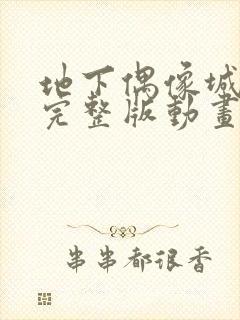 地下偶像城
完整版動畫
串串都很香